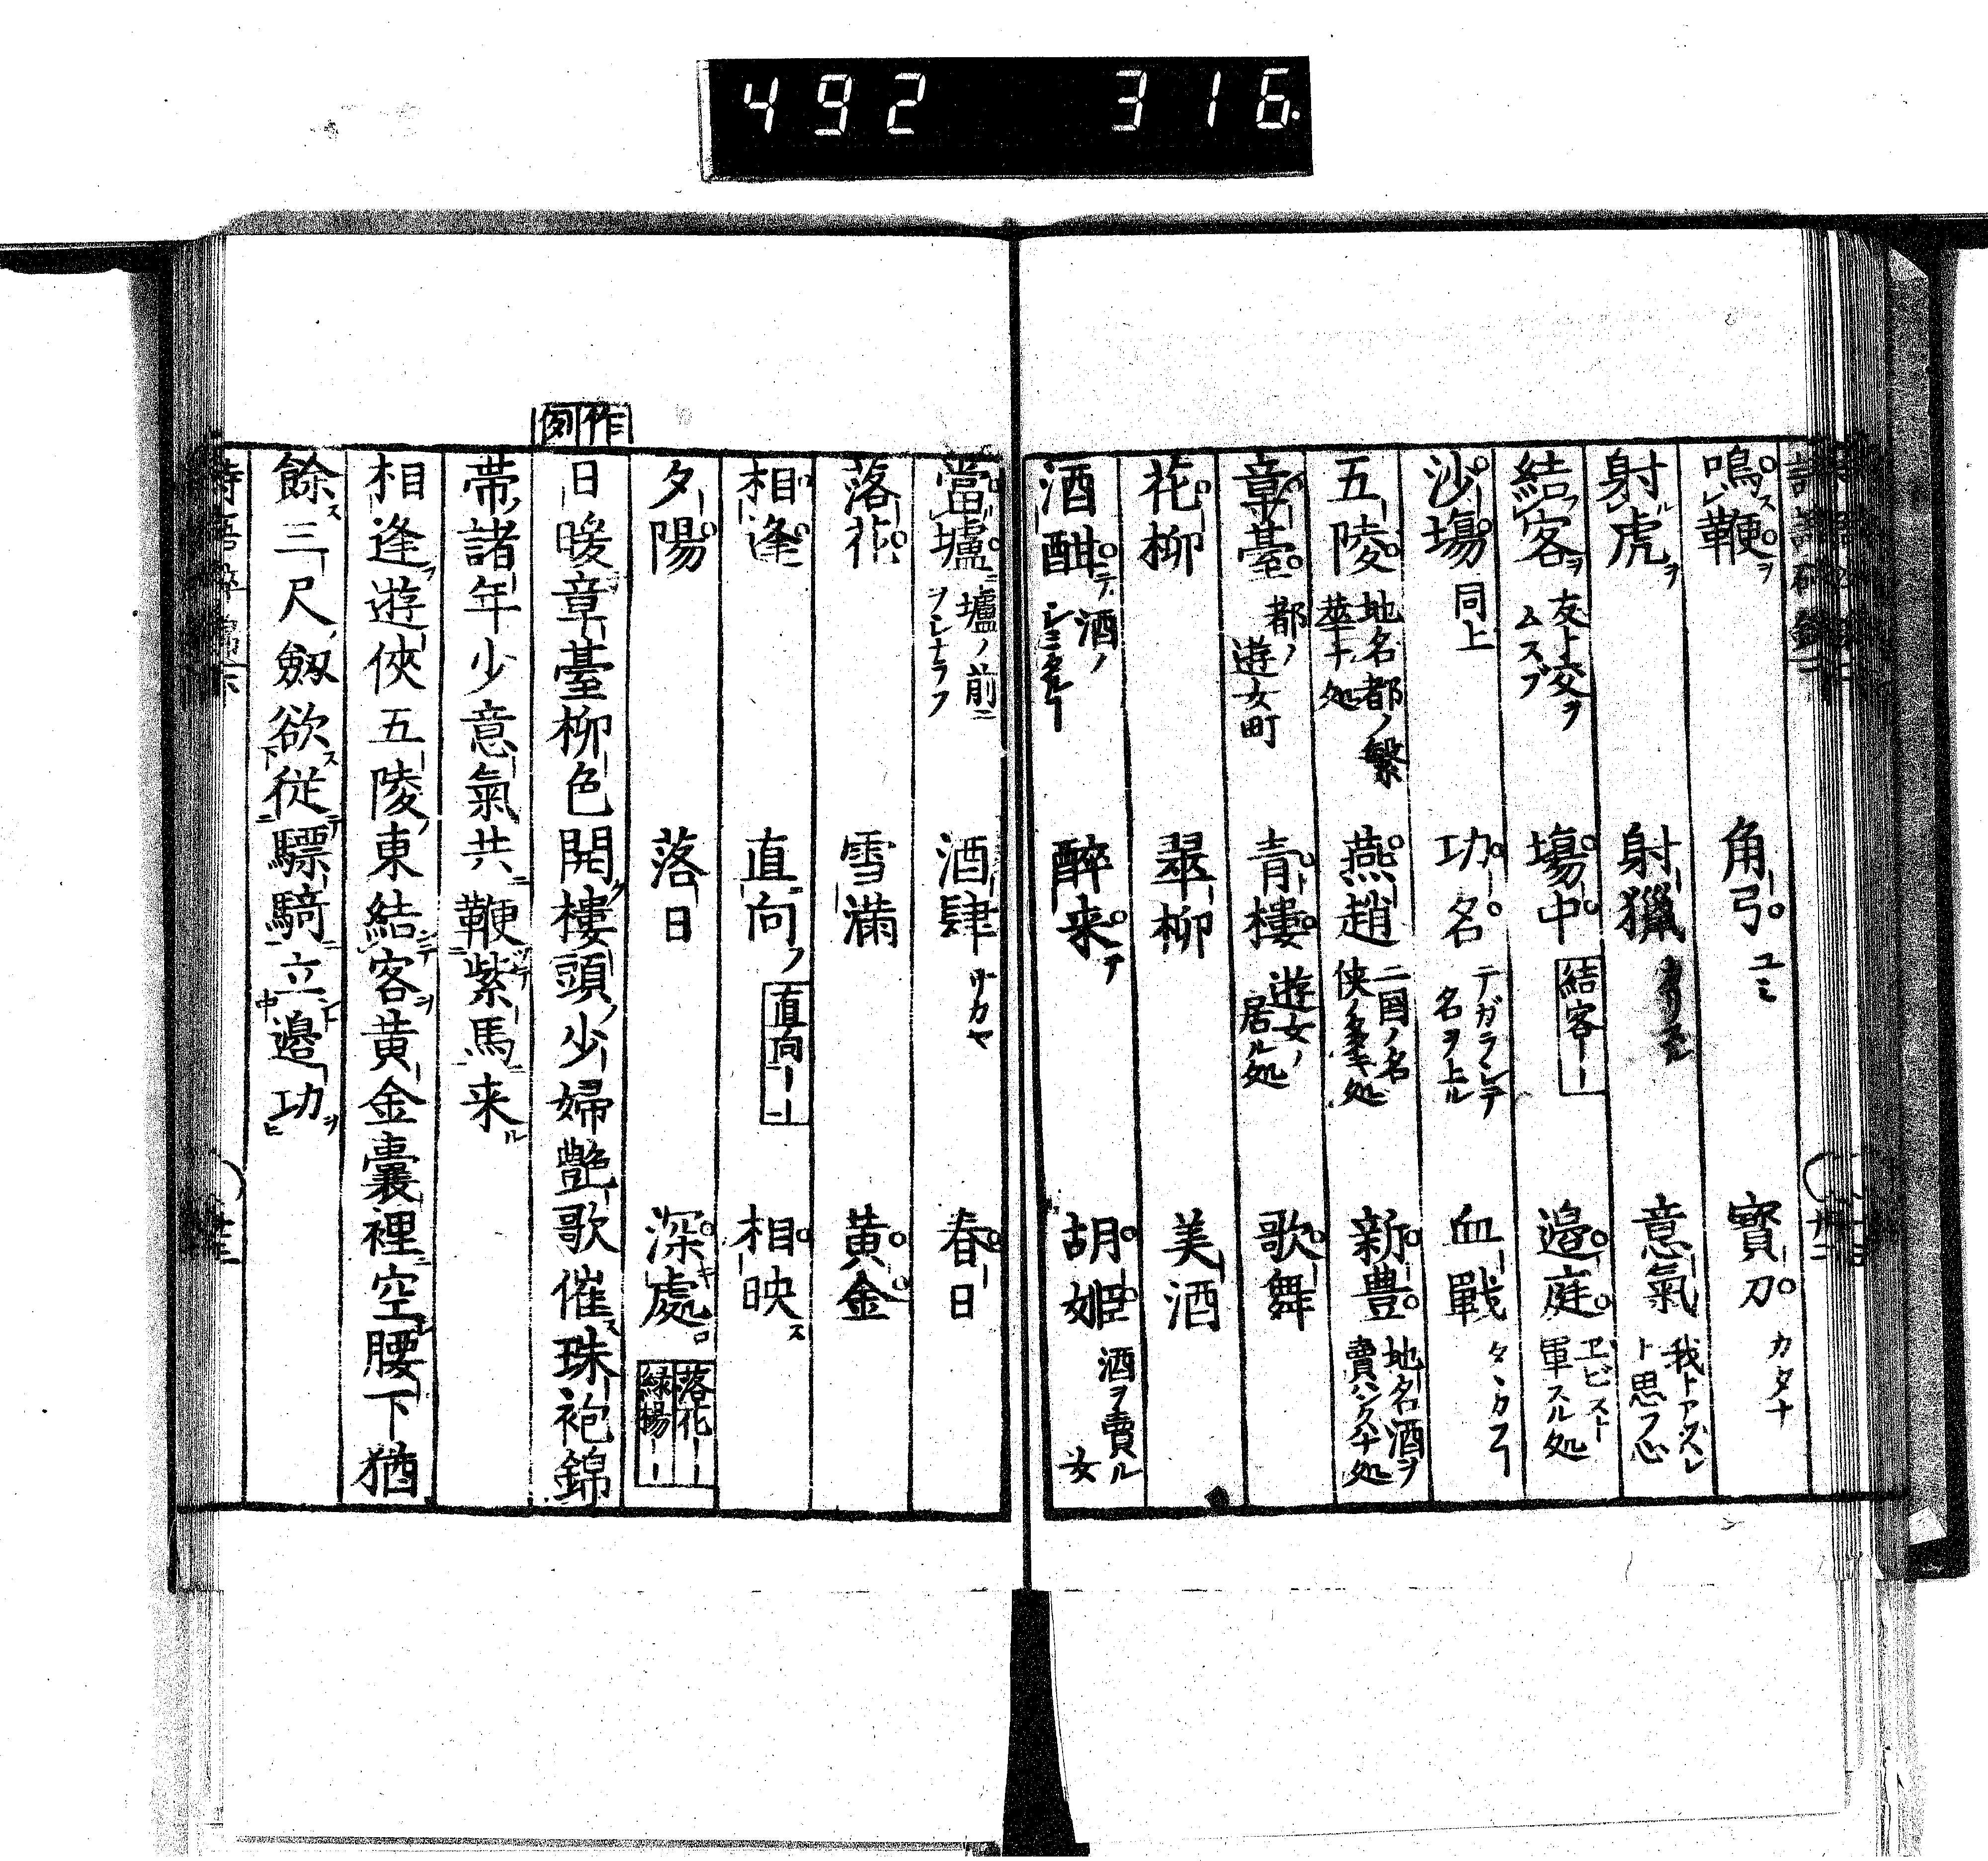 492 316
鳴鞭 角弓 ユミ 寳刀 カタナ
射虎 射獵 意氣 我ト思フ心
結客 友ト交ヲムスブ 塲中 結客ーー 邉庭 ヱビスト軍スル処
沙塲 同上 功名 テガラシテ名ヲ上ル 血戰
五陵 地名都ノ繁華ナ処 燕趙 二国ノ名侠ノ多キ処 新豊 地名酒ヲ賣処
章臺 都ノ遊女町 青樓 遊女ノ居ル処 歌舞
花柳 翠柳 美酒
酒酣 酒ノ 醉来 胡姬 酒ヲ賣ル女
當壚 壚ノ前ニ 酒肆 サカヤ 春日
落花 雪滿 黄金
相逢 直向 直向ーー 相映
夕陽 落日 深處 落花ーー 緑楊ーー
作例
日暖章臺柳色開樓頭少婦艶歌催珠袍錦
帯諸年少意氣共鞭紫馬来
相逢遊俠五陵東結客黄金嚢裡空腰下猶
餘三尺劔欲従驃騎立邉功